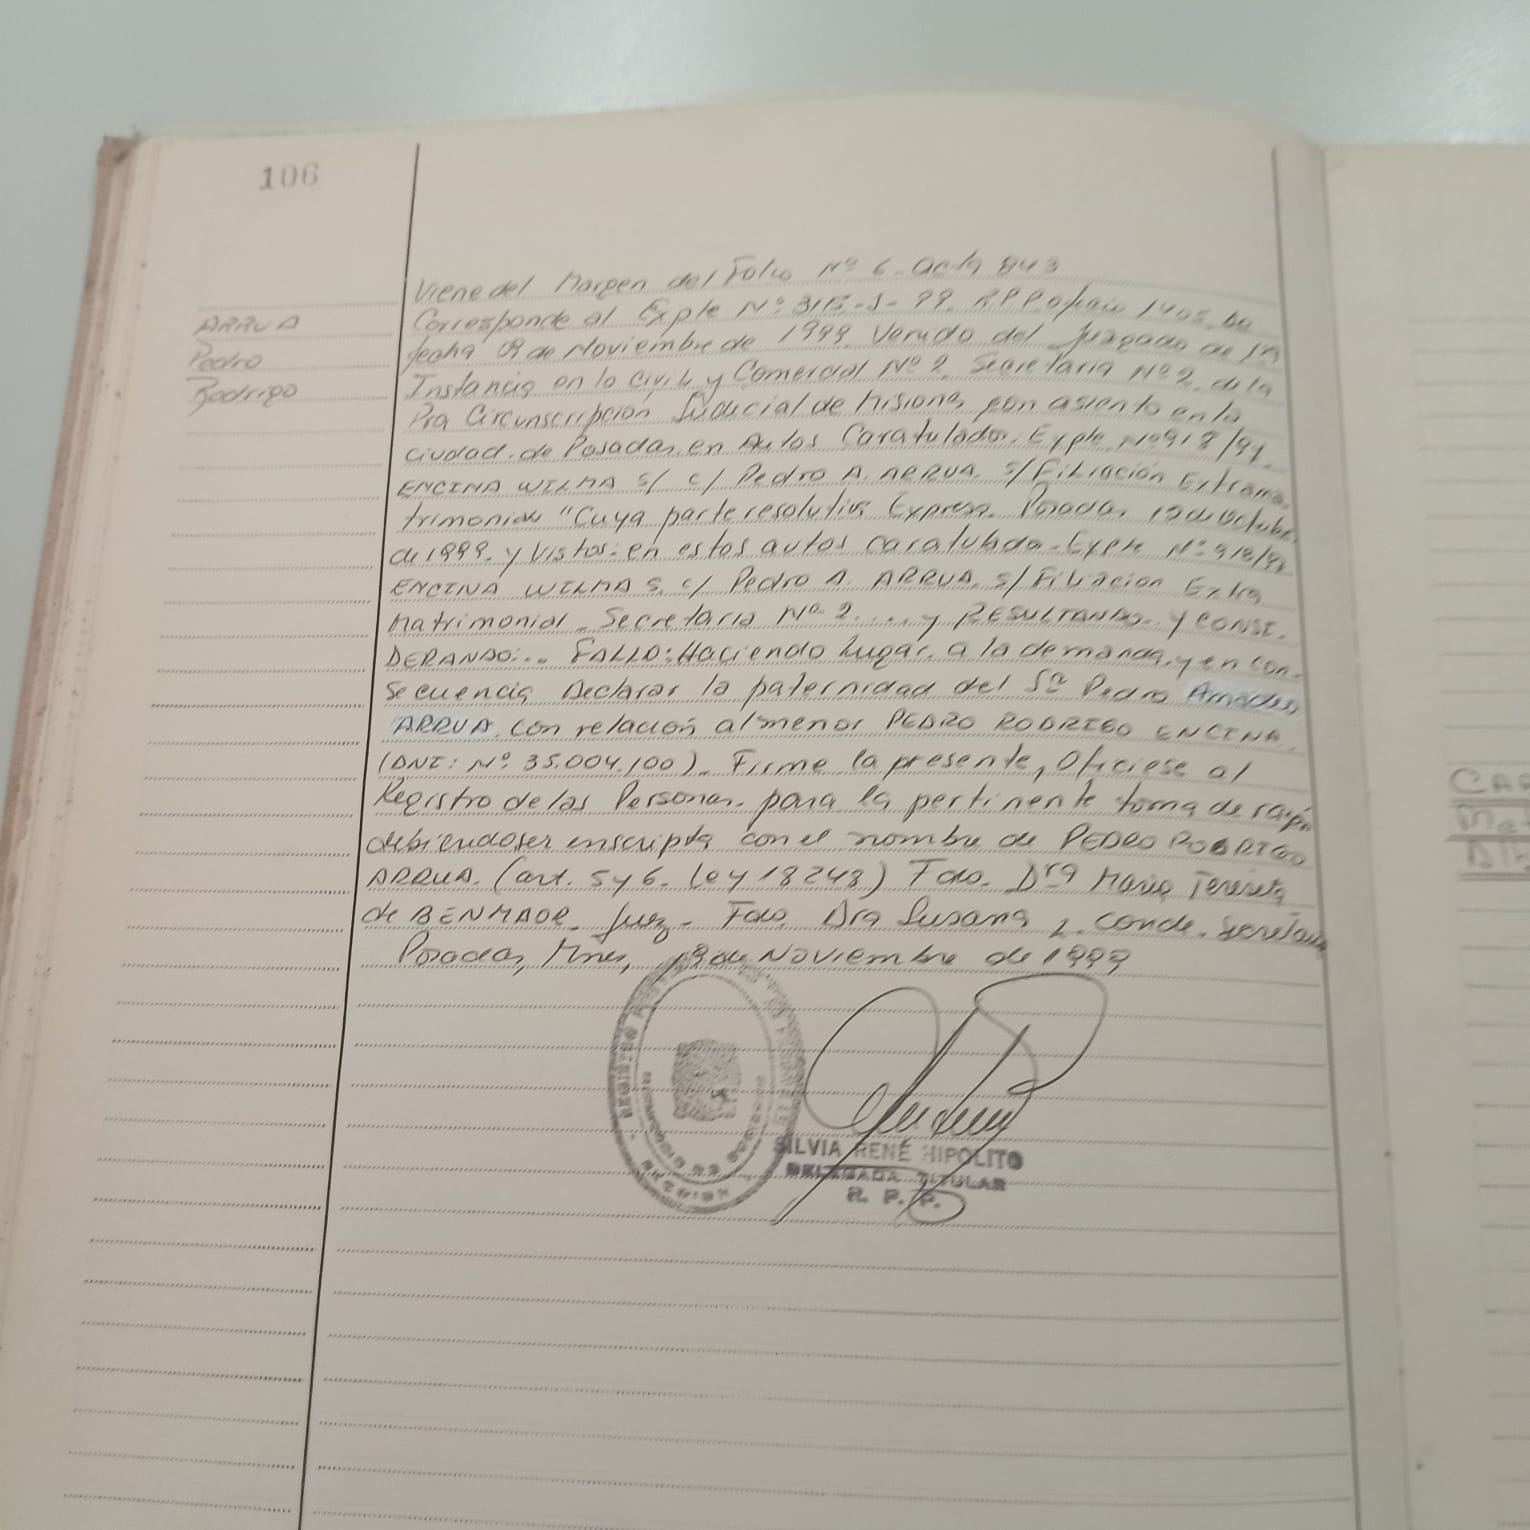 106
ARRUA
Pedro
Rodrigo
Viene del Margen del Folio Nº 6 - Acta 843
Corresponde al Expte Nº 3115-J-99. R.P.P. oficio 1405, de
fecha 09 de Noviembre de 1999. Venido del Juzgado de 1ra
Instancia en lo Civil y Comercial Nº 2. Secretaria Nº 2. de la
Pra Circunscripcion Judicial de Misiones con asiento en la
ciudad de Posadas, en Autos Caratulados. Expte. Nº 918/91.
ENCINA WILMA S/ c/ Pedro A. ARRUA. s/Filiación Extrama-
trimonial "Cuya parte resolutiva Expresa. Posadas 12 de Octubre
de 1999. y Vistos: en estos autos caratulado - Expte Nº 918/91
ENCINA WILMA S. c/ Pedro A. ARRUA. s/Filiacion Extra
Matrimonial - Secretaria Nº 2.... y RESULTANDO. y CONSI-
DERANDO:.. FALLO: Haciendo lugar a la demanda, y en con-
secuencia Declarar la paternidad del Sr Pedro Amadeo
ARRUA. con relación al menor PEDRO RODRIGO ENCINA.
(DNI: Nº. 35.004.100). Firme la presente, Ofíciese al
Registro de las Personas. para la pertinente toma de razón
debiendo ser inscripta con el nombre de PEDRO RODRIGO
ARRUA. (art. 5 y 6. Ley 18248) Fdo. Dra Maria Teresita
de BENMAOR. Juez - Fdo. Dra Susana L. Conde. Secretaria
Posadas, Mnes, 18 de Noviembre de 1999
SILVIA RENÉ HIPOLITO
DELEGADA TITULAR
R. P. P.